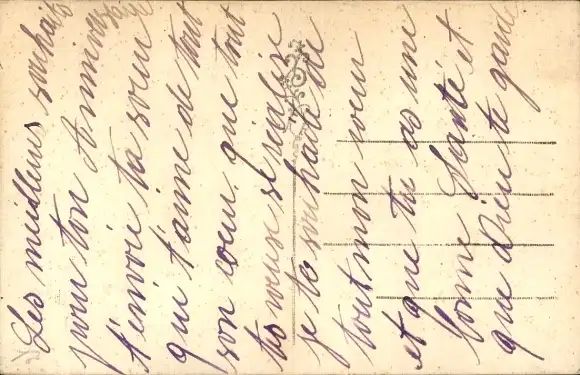 Les meilleurs souhaits
pour ton Anniversaire
t'envoie ta soeur
qui t'aime de tout
son coeur que tout
tes voeux se réalise
je te souhaite de
tout mon coeur
et que tu as une
bonne Santé et
que Dieu te garde